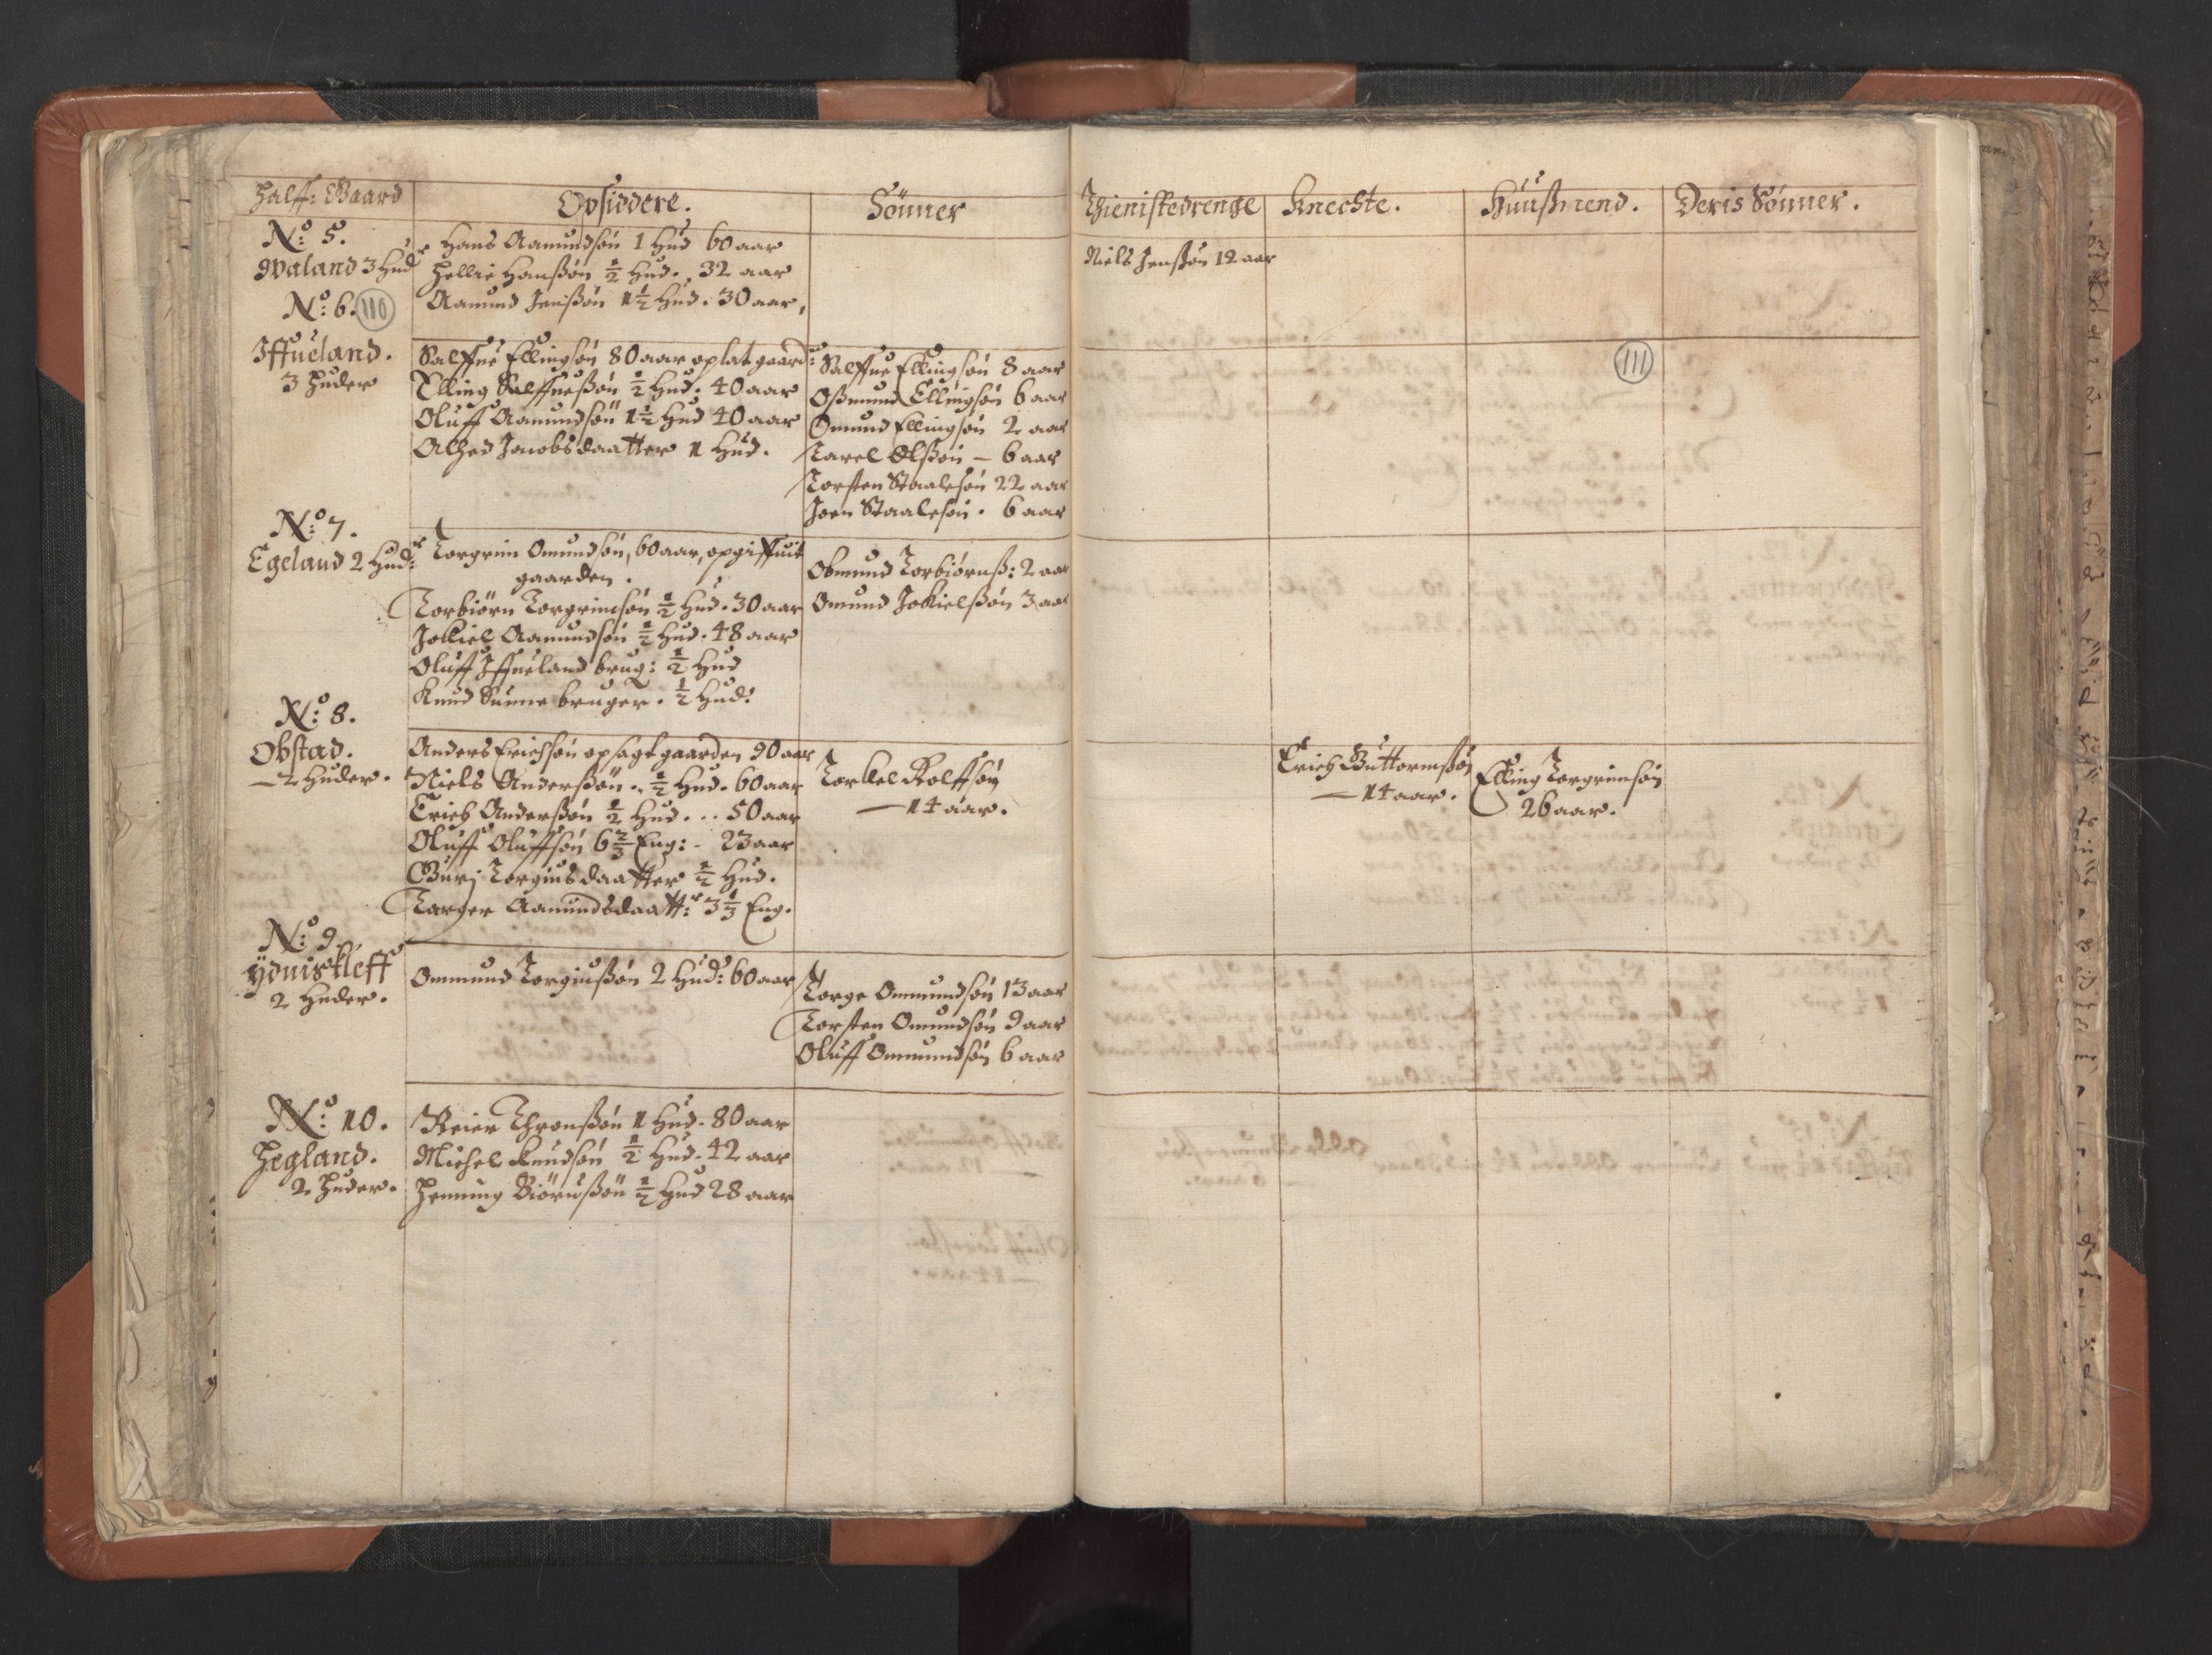 Halff: Gaard
Opsiddere.
Sönner
Thienistedrenge
Knechte.
Huußmend.
Deris Sönner.
No: 5.
Qvaland 3 Hudr
Hans Aamundsøn 1 Hud 60 aar
Hellie Hanßøn ½ Hud. 32 aar
Aamund Jenßøn 1½ Hud. 30 aar,
Niels Jenßøn 12 aar
No: 6.
110
Iffueland.
3 Huder
Salffue Ellingsøn 80 aar oplat gaardn:
Elling Salffueßøn ½ Hud. 40 aar
Oluff Aamundsøn 1½ Hud 40 aar
Alhed Jacobsdaatter 1 Hud.
Salffue Ellingsøn 8 aar
Oßmund Ellingsøn 6 aar
Omund Ellingsøn 2 aar
Tarel Olßøn – 6 aar
Torsten Staalesøn 22 aar
Joen Staalesøn. 6 aar
111
No: 7.
Egeland 2 Hudr:
Torgrim Omundsøn, 60 aar, opgiffuit
gaarden.
Torbiørn Torgrimsøn ½ Hud. 30 aar
Jokiel Aamundsøn ½ Hud. 48 aar
Oluff Iffueland brug: ½ Hud
Knud Sunne bruger. ½ Hud:
Obmund Torbiørnß: 2 aar
Omund Jokielßøn 3 aar
No: 8.
Obstad.
– 2 Huder.
Anders Erichsøn opsagt gaarden 90 aar
Niels Anderßøn. ½ Hud. 60 aar
Erich Anderßøn ½ Hud. .. 50 aar
Oluff Oluffsøn 6⅔ Eng: - 23 aar
Gurj Torgiusdaatter ½ Hud.
Targer Aamundsdaattr: 3⅓ Eng.
Torkel Rolffsøn
– 14 aar.
Erich Guttormsøn
– 14 aar.
Elling Torgrimsøn
26 aar.
No: 9.
Ydnistleff
2 Huder.
Ommund Torgiußøn 2 Hud: 60 aar
Torge Ommundsøn 13 aar
Torsten Omundsøn 9 aar
Oluff Ommundsøn 6 aar
No: 10.
Hegland.
2 Huder.
Reier Thronßøn 1 Hud. 80 aar
Michel Knudsøn ½ Hud. 42 aar
Henning Biørnßøn ½ Hud 28 aar